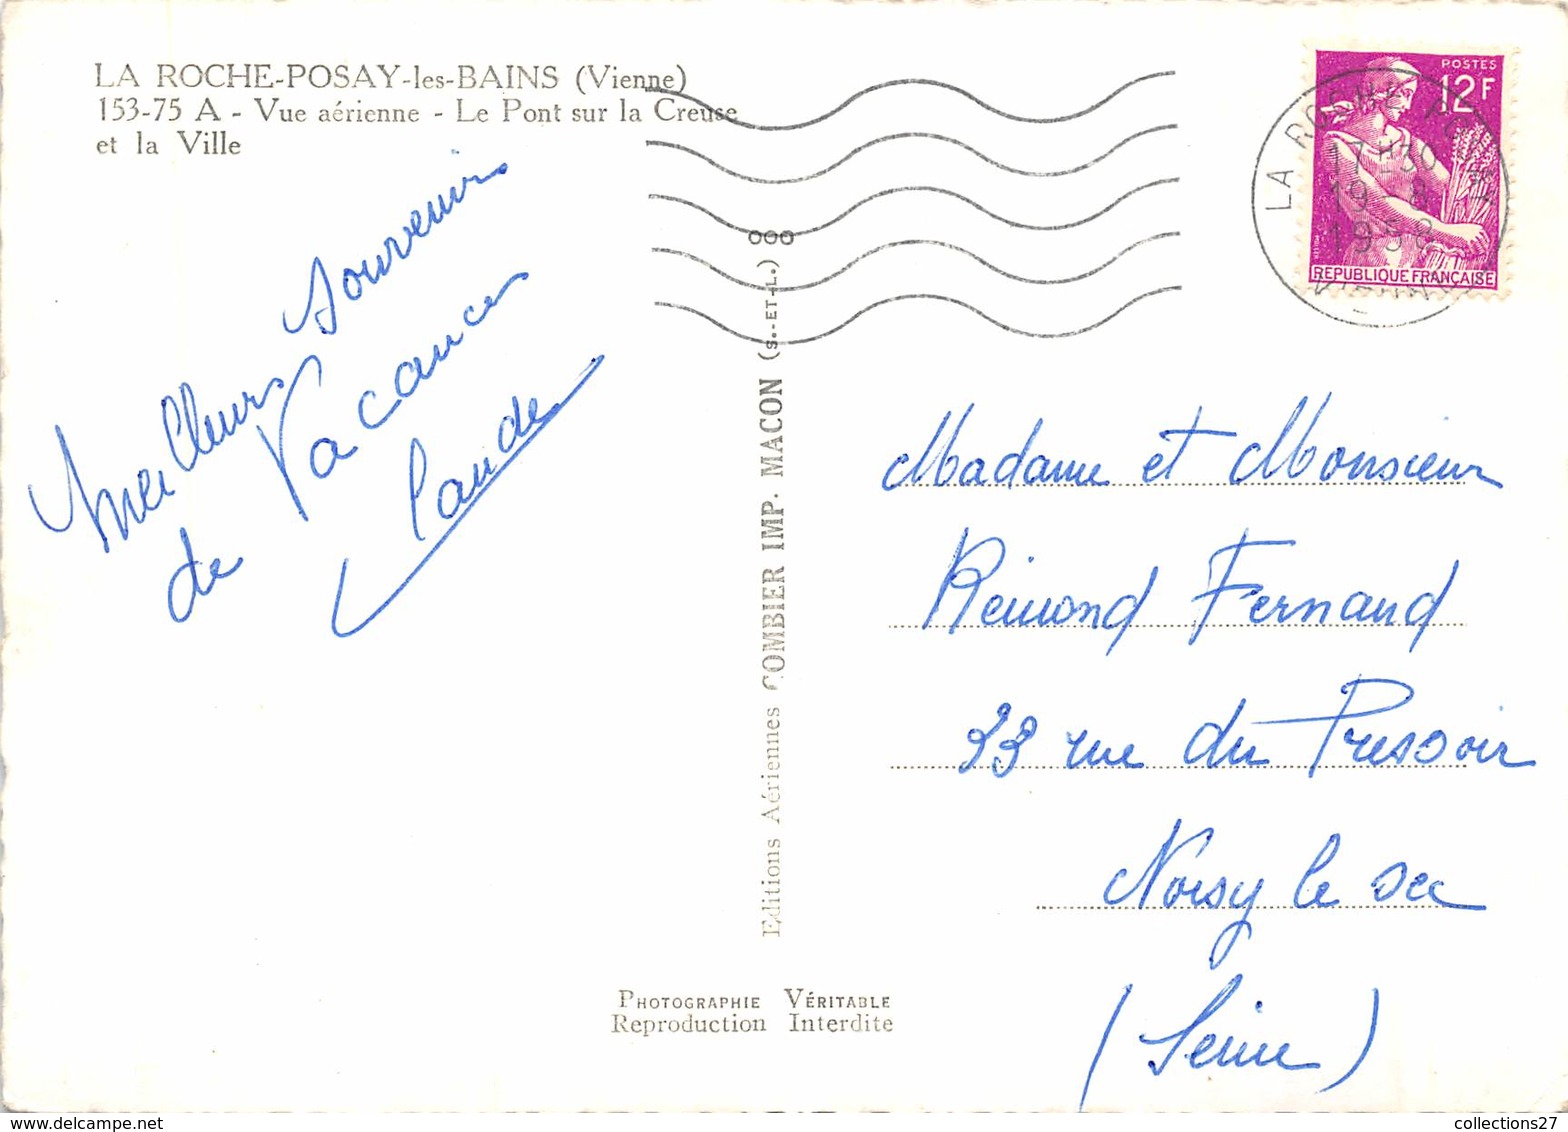 LA ROCHE-POSAY-les-BAINS (Vienne)
153-75 A - Vue aérienne - Le Pont sur la Creuse
et la Ville
Meilleurs Souvenirs
de Vacances
Claude
Editions Aériennes COMBIER IMP. MACON (S.-ET-L.) OOO
PHOTOGRAPHIE VÉRITABLE
Reproduction Interdite
POSTES
12F
REPUBLIQUE FRANÇAISE
LA ROCHE POSAY
17H30
19 8
1958
VIENNE
Madame et Monsieur
Reimond Fernand
33 rue du Pressoir
Noisy le sec
(Seine)
collections27